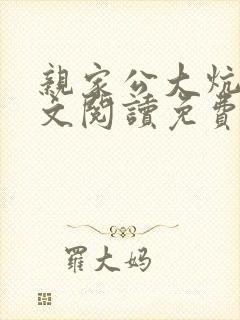 親家公大炕
文閱讀免費
羅大妈